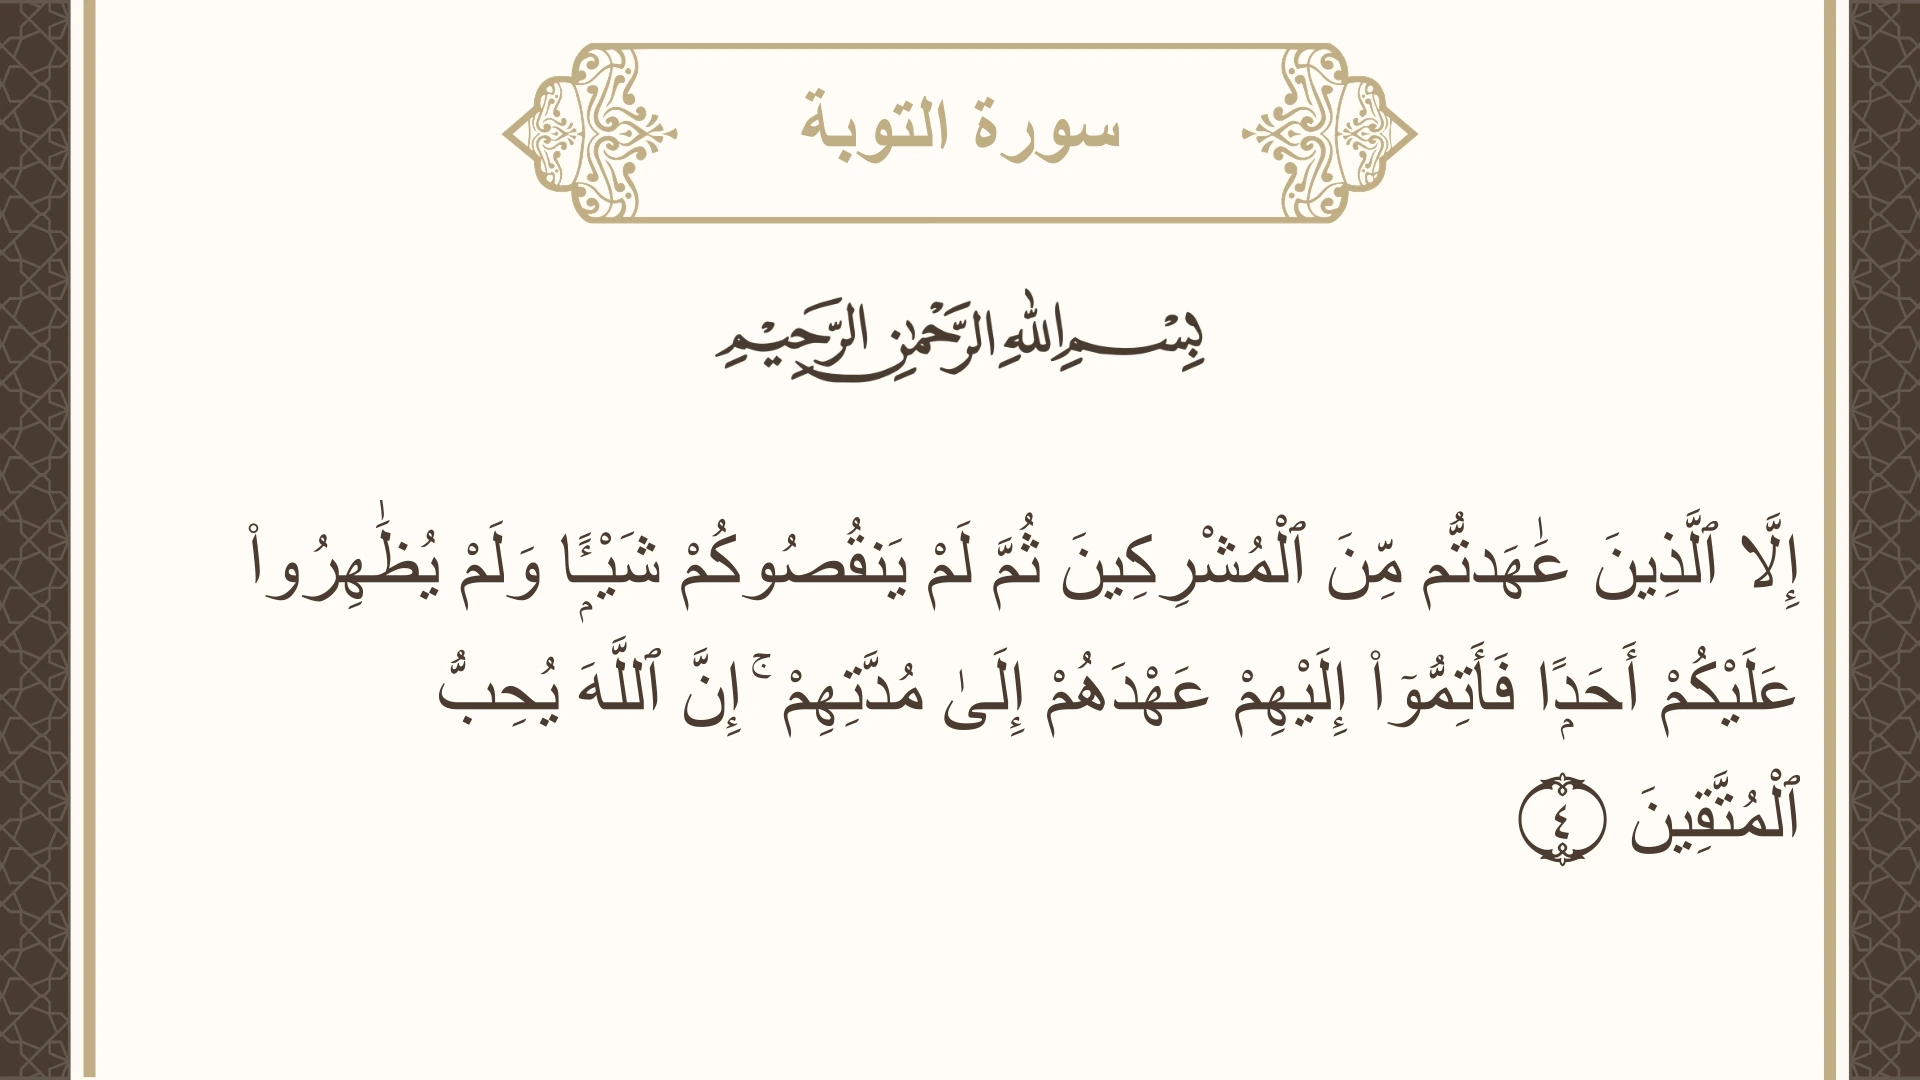 سورة التوبة
بِسْمِ اللهِ الرَّحْمٰنِ الرَّحِيْمِ
إِلَّا ٱلَّذِينَ عَٰهَدتُّم مِّنَ ٱلْمُشْرِكِينَ ثُمَّ لَمْ يَنقُصُوكُمْ شَيْـًۭٔا وَلَمْ يُظَٰهِرُوا۟
عَلَيْكُمْ أَحَدًۭا فَأَتِمُّوٓا۟ إِلَيْهِمْ عَهْدَهُمْ إِلَىٰ مُدَّتِهِمْ ۚ إِنَّ ٱللَّهَ يُحِبُّ
ٱلْمُتَّقِينَ ٤